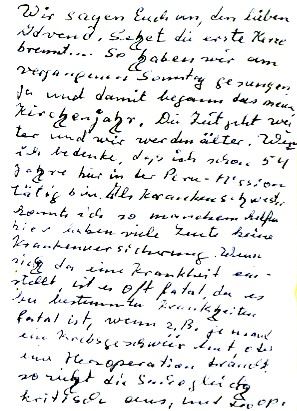 Wir sagen Euch an, den lieben
Advent. Sehet die erste Kerze
brennt... So haben wir am
vergangenen Sonntag gesungen
ja und damit begann das neue
Kirchenjahr. Die Zeit geht wei
ter und wir werden älter. Wenn
ich bedenke, dass ich schon 54
Jahre hier in der Peru-Mission
tätig bin. Als Krankenschwester
konnte ich so manchem helfen
hier haben viele Leute keine
Krankenversicherung. Wenn
sich da eine Krankheit ein-
stellt, ist es oft fatal, da es
bei bestimmten Krankheiten
fatal ist, wenn z.B. jemand
ein Krebsgeschwür hat oder
eine Herzoperation braucht
so sieht die Sache gleich
kritisch aus, und